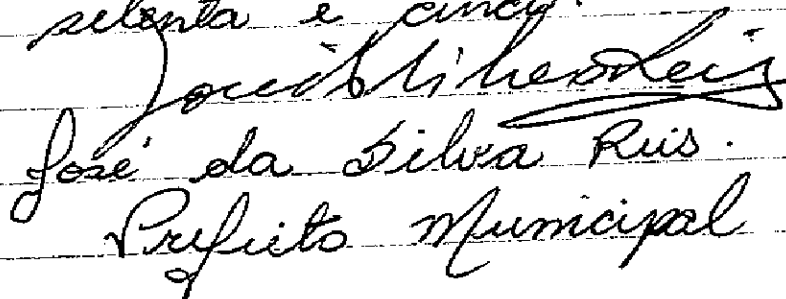 setenta e cinco.
José da Silva Reis.
Prefeito Municipal